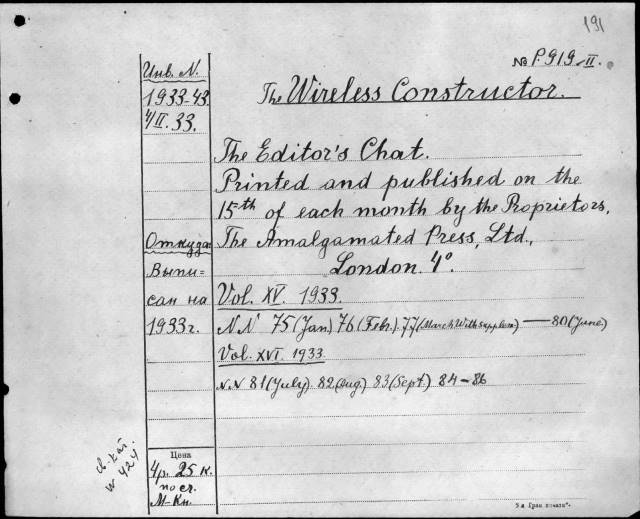 191
№ P.919-II.
Инв. N.
1933-43.
4/II. 33.
The Wireless Constructor.
The Editor's Chat.
Printed and published on the
15th of each month by the Proprietors,
The Amalgamated Press, Ltd.,
London. 4°.
Откуда
Выпи-
сан на
1933г.
Vol. XV. 1933.
N.N 75 (Jan.) 76 (Febr.) 77 (March With supplem.) — 80 (June)
Vol. XVI. 1933.
N.N 81 (July) 82 (Aug.) 83 (Sept.) 84-86
w 424
Цена
4р. 25 к.
по сч.
М-Кн.